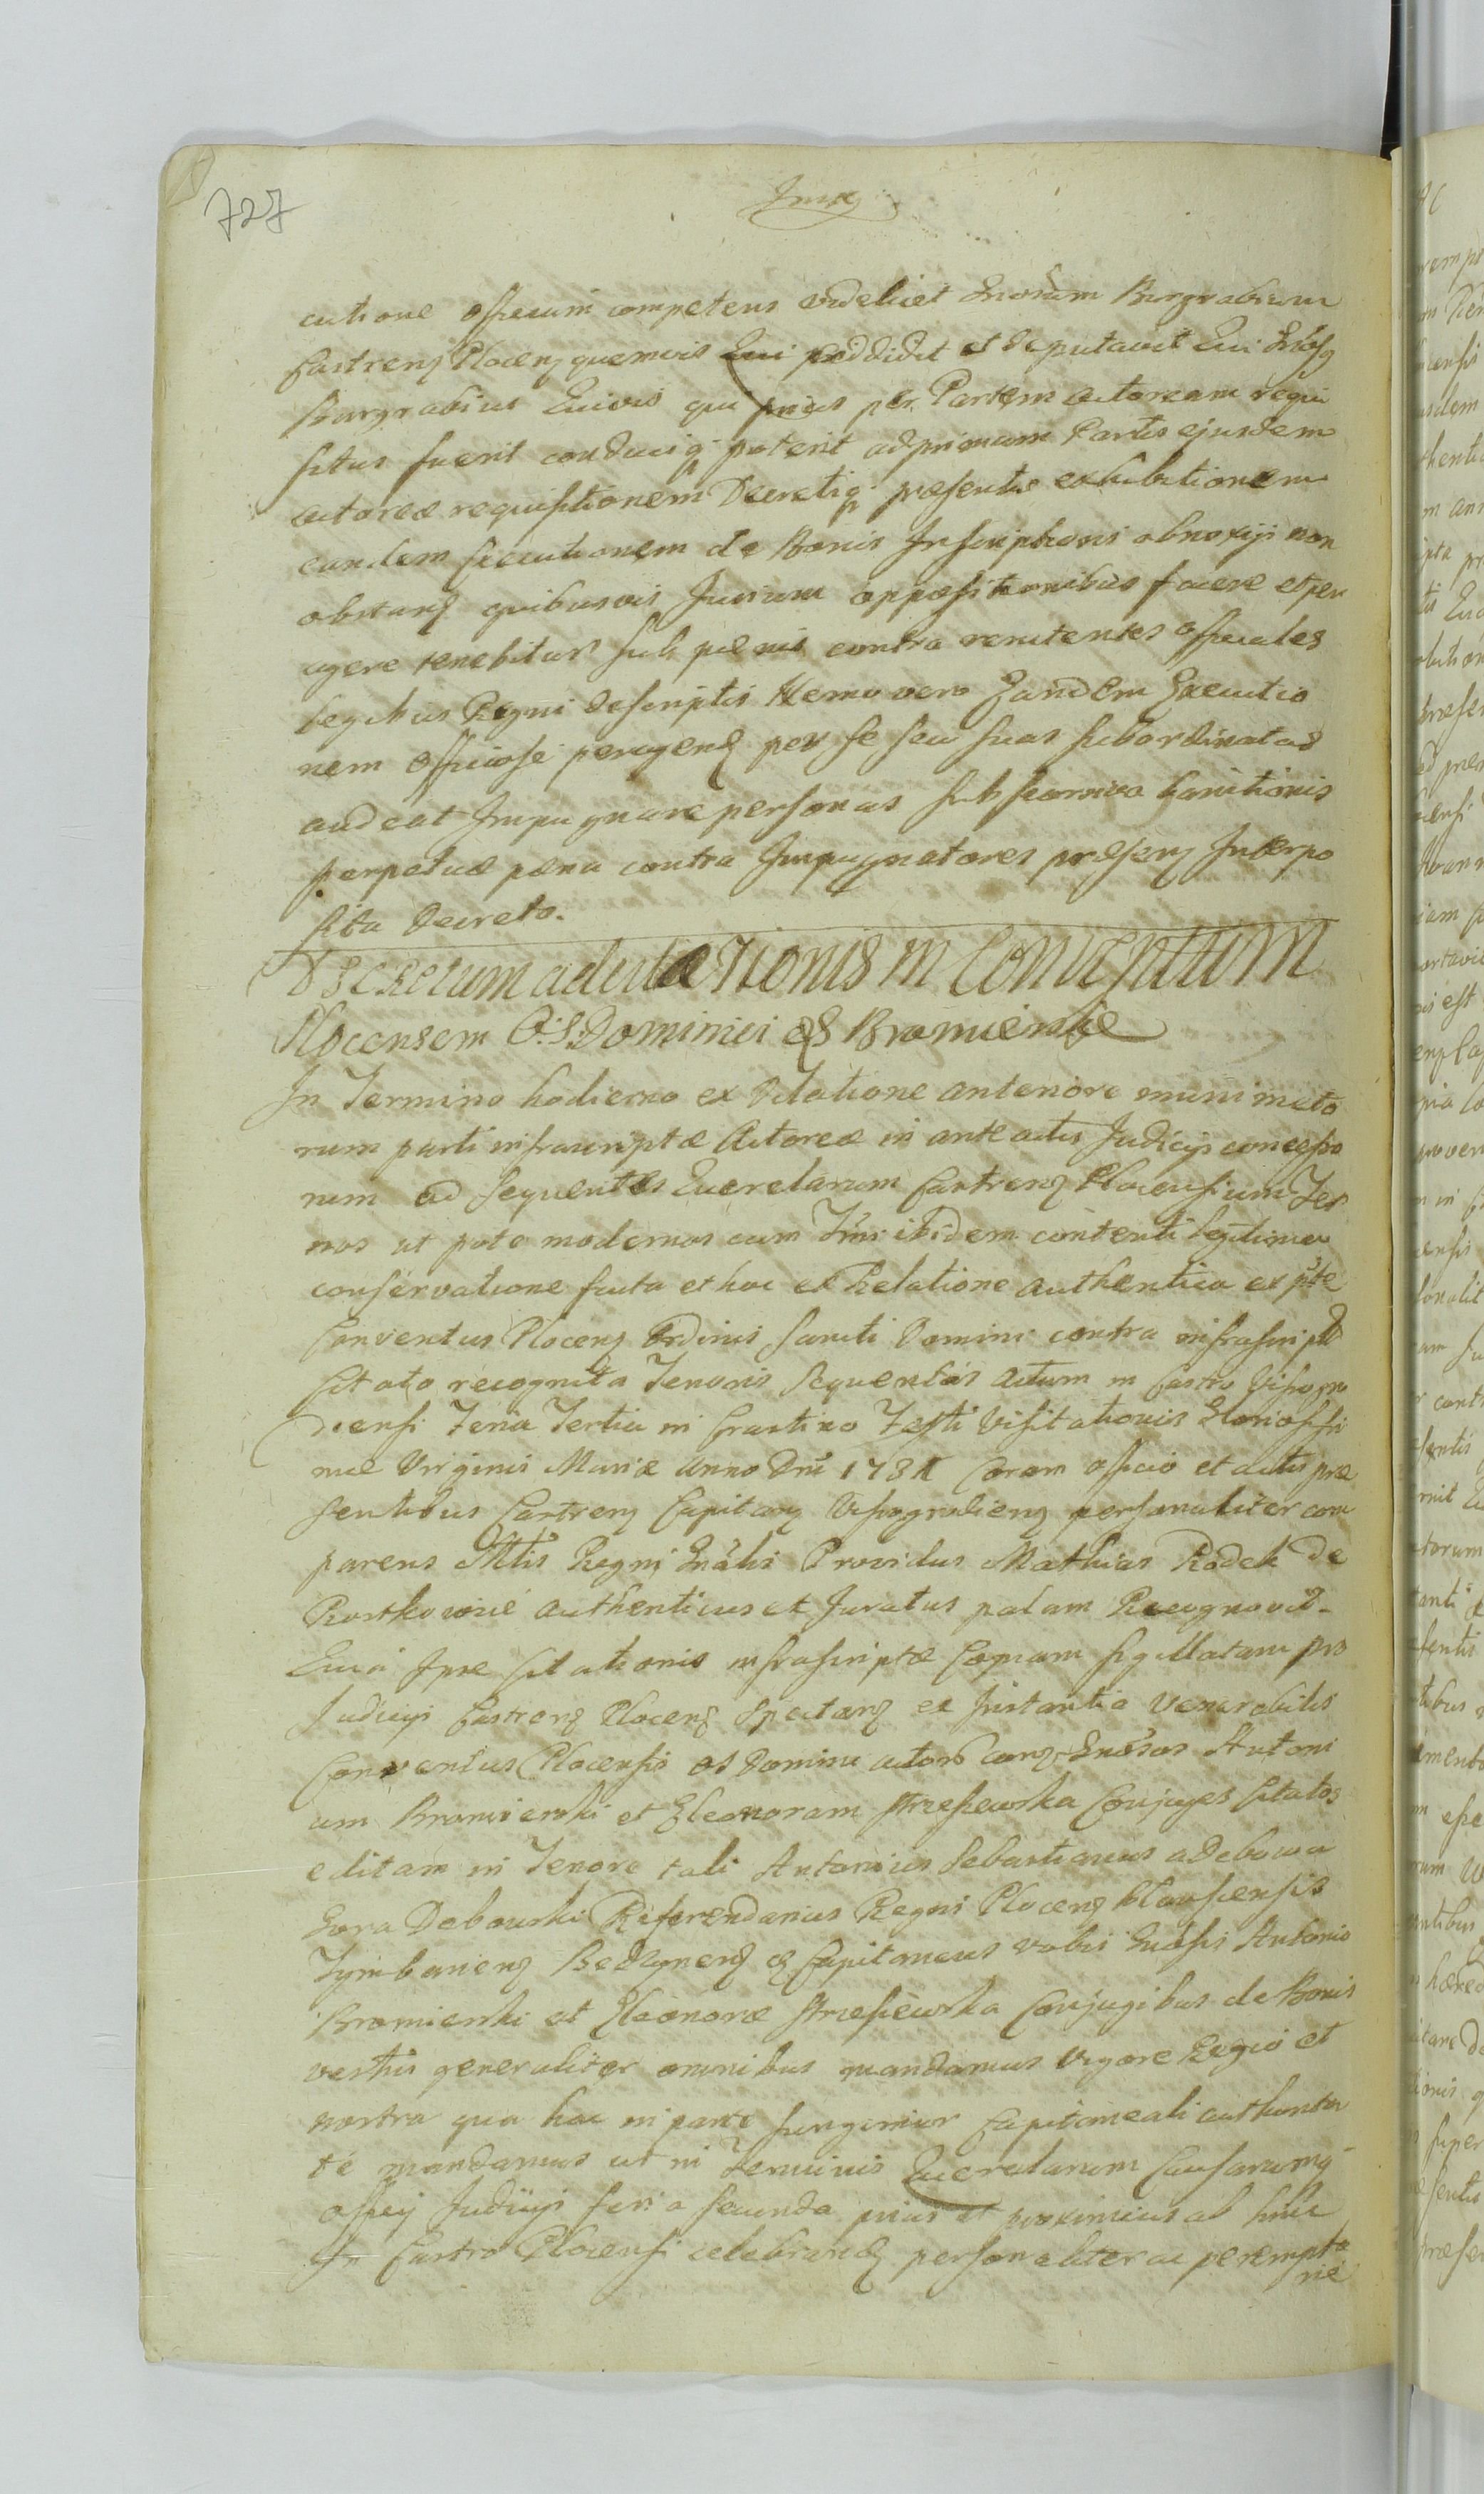 727
cutione officium competens videlicet Gnosum Burgrabium
Castrens Plocens quemvis Qui addidit et deputavit Qui Gnosus
Burgrabius Quivis qui prius per Partem actoream requi
situs fuerit conduciq poterit ad primam Partis ejusdem
actoreæ requisitionem Decretiq præsentis exhibitionem
eandem executionem de Bonis Inscriptionis obnoxijs non
obstans quibusvis Jurium oppositionibus facere et per
agere tenebitur sub pænis contra renitentes officiales
legibus Regni descriptis Nemo vero Eandem Executio
nem officiose peragens per se seu suas subordinatas
audeat Impugnare personas sub banitionis
perpetuæ pæna contra Impugnatores præsens Interpo
sita Decreto.
Decretum in Conventum
Plocensem O: S: Dominici et Bromierskie
In Termino hodierno ex Dilatione anteriore munimeto
rum parti infrascriptæ Actoreæ in anteactis Judicijs concesso
rum ad sequentes Querelarum Castrens Plocensium Ter
nos ut pote modernos cum Trni ibidem contenti legitima
conservatione facta et hac ex Relatione authentica ex pte
Conventus Plocens Ordinis Sancti Domini contra infrascript
Citato recognita Tenoris sequentis Actum in Castro Vissogro
diensi Feria Tertia in Crastino Festi Visitationis Gloriosissi
mæ Virginis Mariæ Anno Dni 173 Coram officio et actis præ
sentibus Castrens Capitans Vissogrodiens personaliter com
parens Mtis Regni Gnalis Providus Mathias Rodek de
Rostkowice authenticus et Juratus palam Recognovit
Quia Ipse Citationis infrascriptæ Copiam sigillatam pro
Judicijs Castrens Plocens Spectans ex Instantia Venerabilis
Conventus Plocensis OS Domini actor contra Gnosos Antoni
um Bromierski et Eleonoram Strzeszewska Conjuges Citatos
editam in Tenore tali Antonius Sebastianus a Debowa
Gora Debowski Referendarius Regni Plocens
Tymbariens Bedzynens et Capitaneus vobis Gnosis Antonio
Bromierski et Eleonoræ Strzeszewska Conjugibus de Bonis
vestris generaliter omnibus mandamus Vigore Regio et
nostra qua hac in parte fungimur Capitaneali authorita
te mandamus ut in Terminis Querelarum Causarumq
officij Judicijs feria secunda prius et proximius ab hinc
In Castro Plocensi celebrand personaliter ac perempto
rie